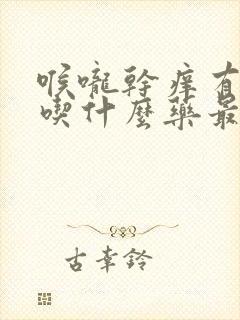 喉嚨幹痒有
喫什麼藥最
古幸鈴